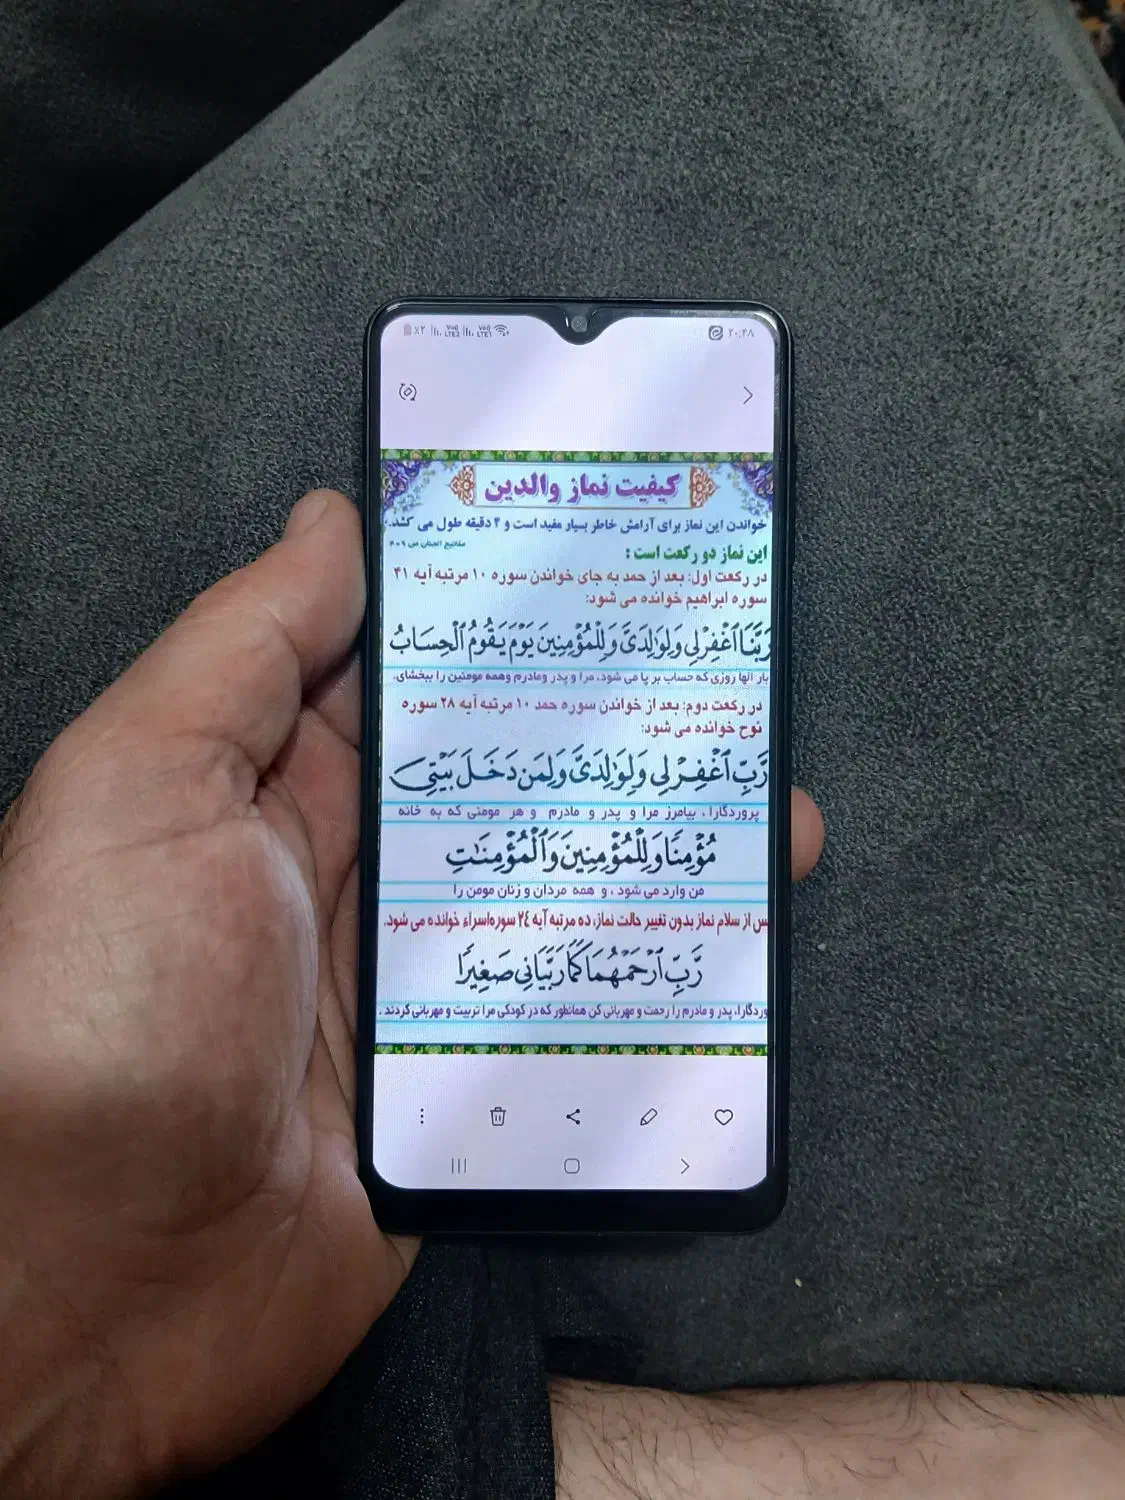 ٪۲ Vo) LTE2 Vo) LTE1 ۲۰:۴۸
کیفیت نماز والدین
خواندن این نماز برای آرامش خاطر بسیار مفید است و ۴ دقیقه طول می کشد.
مفاتیح الجنان ص
این نماز دو رکعت است :
در رکعت اول: بعد از حمد به جای خواندن سوره ۱۰ مرتبه آیه ۴۱
سوره ابراهیم خوانده می شود:
رَبَّنَا اغْفِرْ لِي وَلِوَالِدَيَّ وَلِلْمُؤْمِنِينَ يَوْمَ يَقُومُ الْحِسَابُ
بار الها روزی که حساب بر پا می شود، مرا و پدر ومادرم وهمه مومنین را ببخشای.
در رکعت دوم: بعد از خواندن سوره حمد ۱۰ مرتبه آیه ۲۸ سوره
نوح خوانده می شود:
رَّبِّ ٱغْفِرْ لِي وَلِوَٰلِدَيَّ وَلِمَن دَخَلَ بَيْتِيَ
پروردگارا ، بیامرز مرا و پدر و مادرم و هر مومنی که به خانه
مُؤْمِنًا وَلِلْمُؤْمِنِينَ وَٱلْمُؤْمِنَٰتِ
من وارد می شود ، و همه مردان و زنان مومن را
پس از سلام نماز بدون تغییر حالت نماز، ده مرتبه آیه ٢٤ سوره اسراء خوانده می شود.
رَّبِّ ٱرْحَمْهُمَا كَمَا رَبَّيَانِي صَغِيرًا
وردگارا، پدر و مادرم را رحمت و مهربانی کن همانطور که در کودکی مرا تربیت و مهربانی کردند .